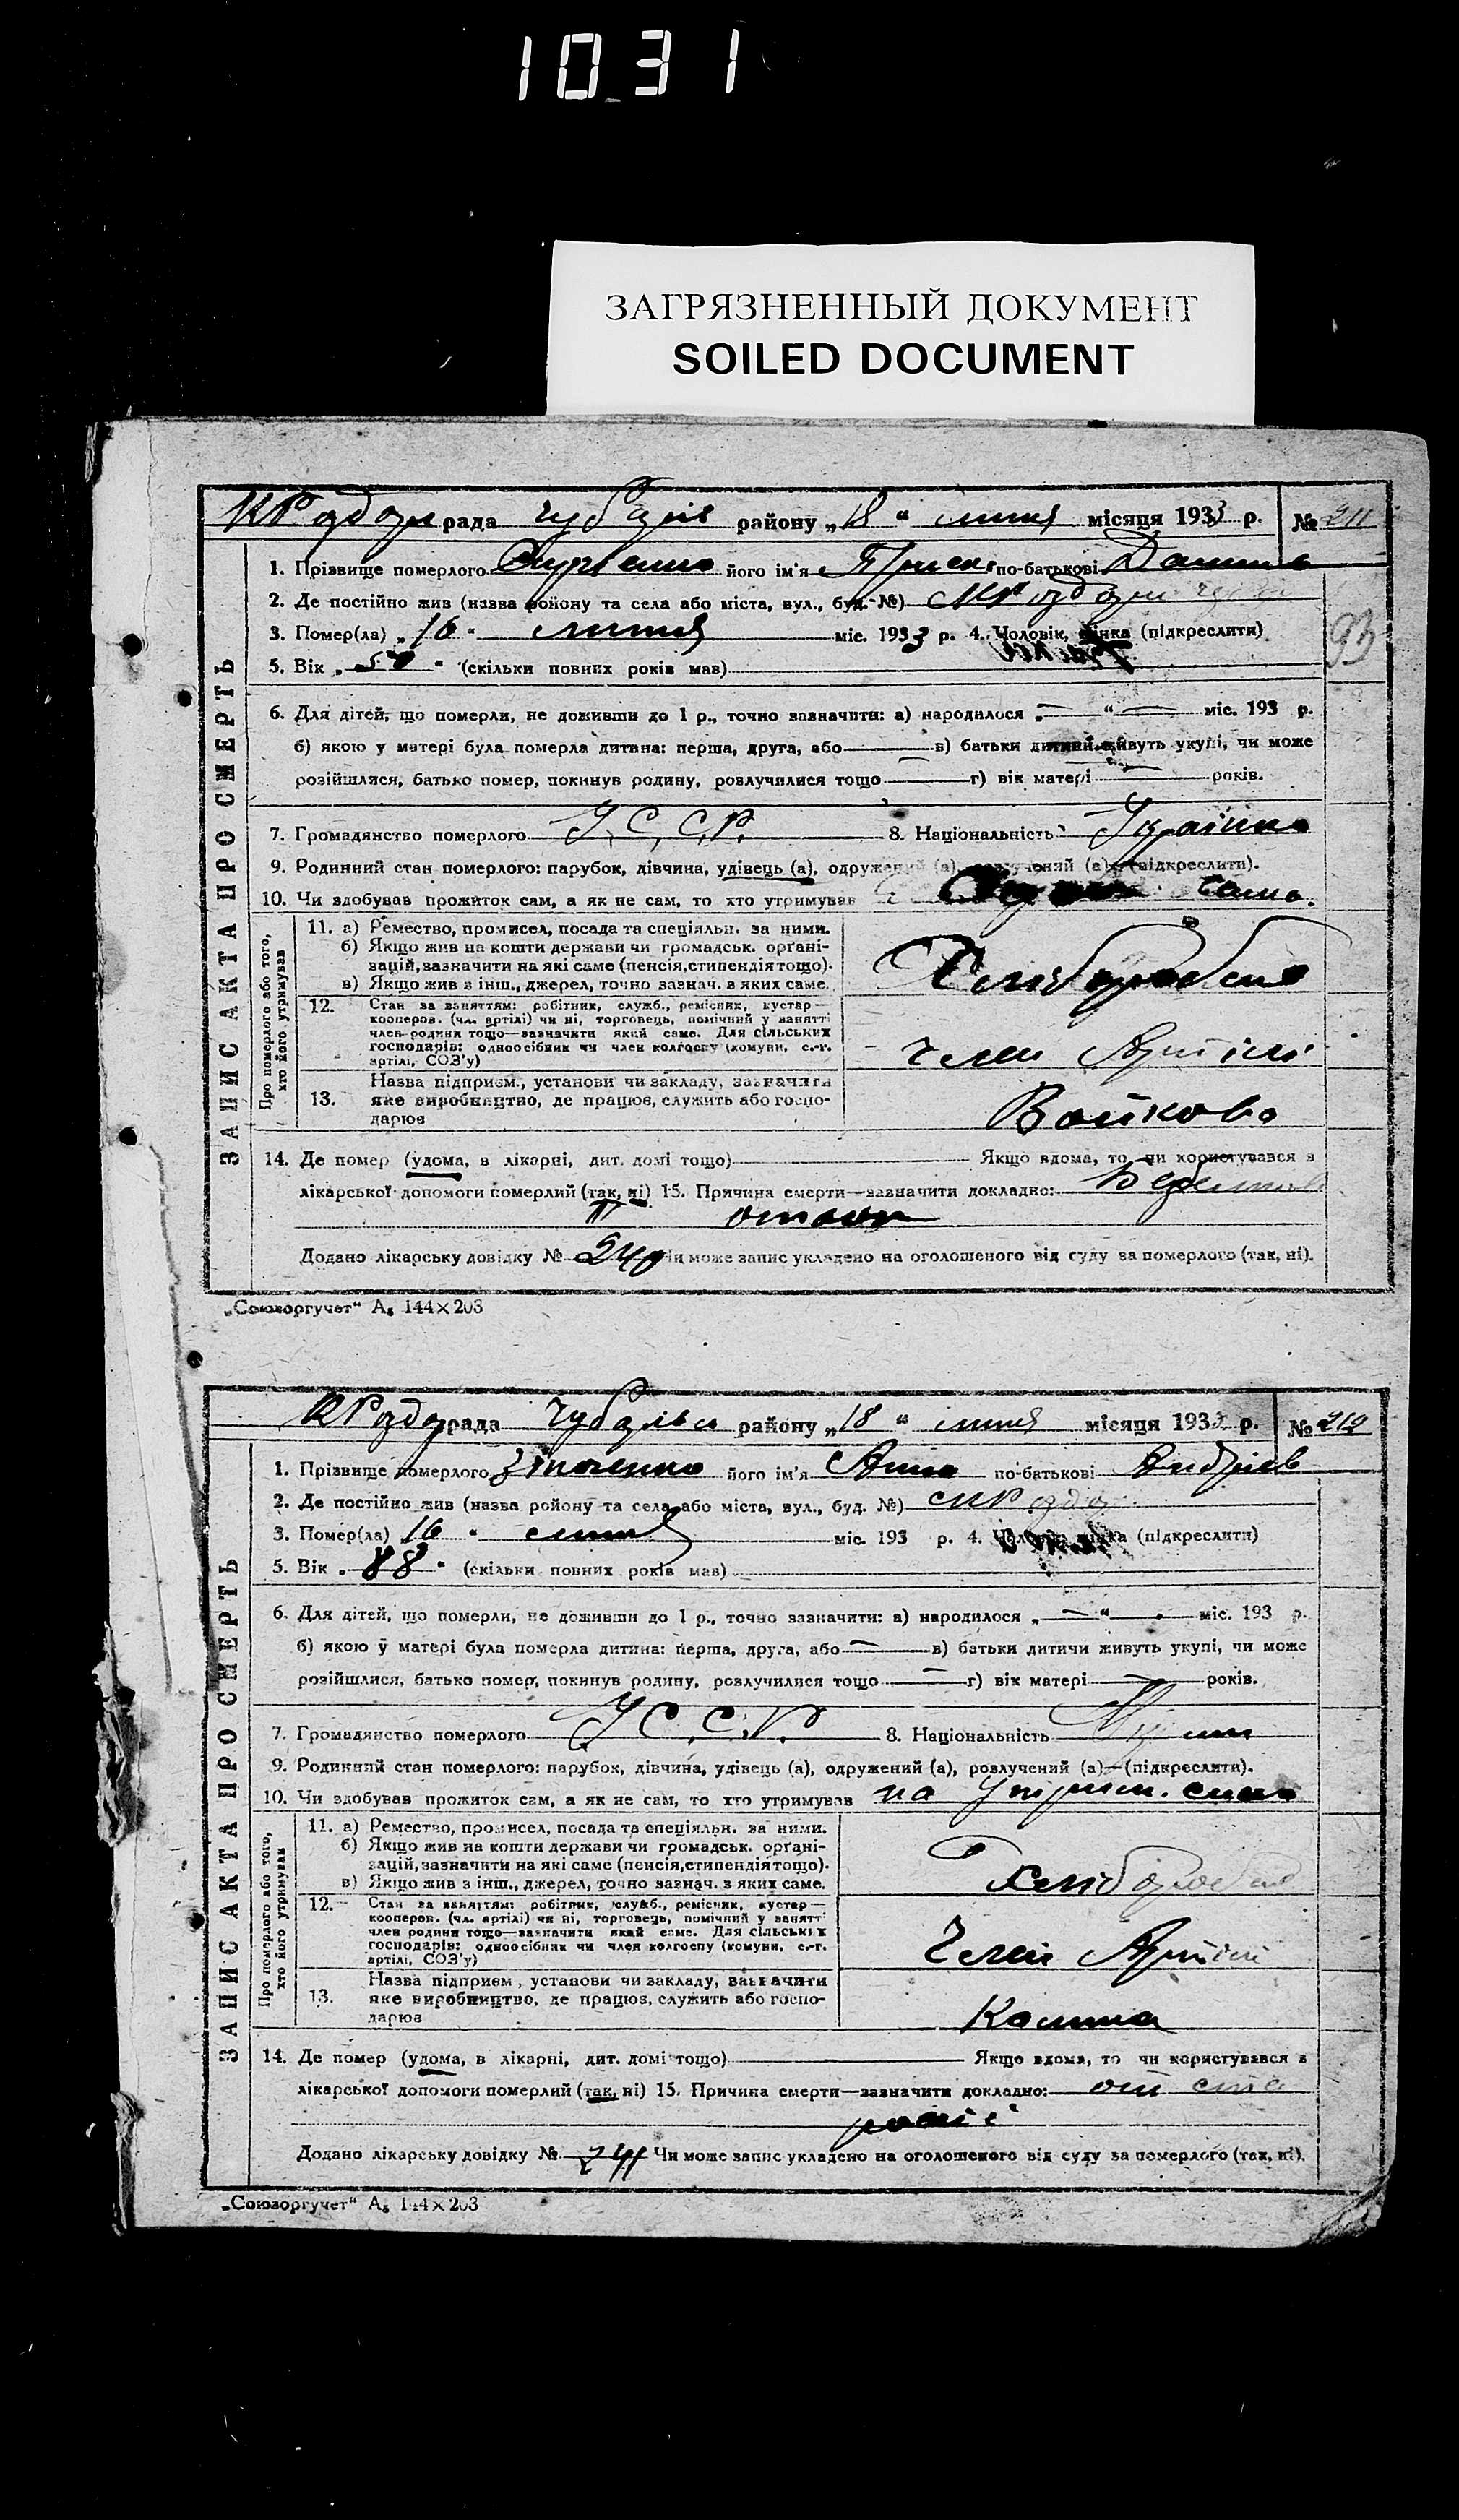 1031
ЗАГРЯЗНЕННЫЙ ДОКУМЕНТ
SOILED DOCUMENT
рада району „18“ липня місяця 1933 р. № 211
ЗАПИС АКТА ПРО СМЕРТЬ
1. Прізвище померлого його ім'я по-батькові
2. Де постійно жив (назва району та села або міста, вул., буд. №)
3. Помер(ла) „16“ липня міс. 1933 р. 4. Чоловік, жінка (підкреслити)
93
5. Вік „50“ (скільки повних років мав)
6. Для дітей, що померли, не доживши до 1 р., точно зазначити: а) народилося „—“ — міс. 193 р.
б) якою у матері була померла дитина: перша, друга, або — в) батьки дитини живуть укупі, чи може
розійшлися, батько помер, покинув родину, розлучилися тощо — г) вік матері — років.
7. Громадянство померлого У.С.С.Р. 8. Національність Українка
9. Родинний стан померлого: парубок, дівчина, удівець (а), одружений (а), розлучений (а)—(підкреслити).
10. Чи здобував прожиток сам, а як не сам, то хто утримував сама.
Про померлого або того, хто його утримував
11. а) Ремество, промисел, посада та спеціяльн. за ними.
б) Якщо жив на кошти держави чи громадськ. органі-
зацій, зазначити на які саме (пенсія, стипендія тощо).
в) Якщо жив з інш., джерел, точно зазнач. з яких саме.
12. Стан за заняттям: робітник, служб., ремісник, кустар—
кооперов. (чл. артілі) чи ні, торговець, помічний у занятті
член родини тощо—зазначити який саме. Для сільських
господарів: одноосібник чи член колгоспу (комуни, с.-г.
артілі, СОЗ'у)
Член Артілі
13. Назва підприєм., установи чи закладу, зазначити
яке виробництво, де працює, служить або госпо-
дарює
Войкова
14. Де помер (удома, в лікарні, дит. домі тощо) Якщо вдома, то чи користувався з
лікарської допомоги померлий (так, ні) 15. Причина смерти—зазначити докладно:
Додано лікарську довідку № 240 Чи може запис укладено на оголошеного від суду за померлого (так, ні).
„Союзоргучет“ А₅ 144×203
рада району „18“ липня місяця 193 р. № 212
ЗАПИС АКТА ПРО СМЕРТЬ
1. Прізвище померлого його ім'я Анна по-батькові Андріев
2. Де постійно жив (назва ройону та села або міста, вул., буд. №)
3. Помер(ла) 16 “ липня міс. 193 р. 4. Чоловік, жінка (підкреслити)
5. Вік „88“ (скільки повних років мав)
6. Для дітей, що померли, не доживши до 1 р., точно зазначити: а) народилося „—“ — міс. 193 р.
б) якою у матері була померла дитина: перша, друга, або — в) батьки дитини живуть укупі, чи може
розійшлися, батько помер, покинув родину, розлучилися тощо — г) вік матері — років.
7. Громадянство померлого У.С.С.Р. 8. Національність
9. Родинний стан померлого: парубок, дівчина, удівець (а), одружений (а), розлучений (а)—(підкреслити).
10. Чи здобував прожиток сам, а як не сам, то хто утримував на утрим. сина
Про померлого або того, хто його утримував
11. а) Ремество, промисел, посада та спеціяльн. за ними.
б) Якщо жив на кошти держави чи громадськ. органі-
зацій, зазначити на які саме (пенсія, стипендія тощо).
в) Якщо жив з інш., джерел, точно зазнач. з яких саме.
12. Стан за заняттям: робітник, служб., ремісник, кустар—
кооперов. (чл. артілі) чи ні, торговець, помічний у занятті
член родини тощо—зазначити який саме. Для сільських
господарів: одноосібник чи член колгоспу (комуни, с.-г.
артілі, СОЗ'у)
Член Артілі
13. Назва підприєм., установи чи закладу, зазначити
яке виробництво, де працює, служить або госпо-
дарює
14. Де помер (удома, в лікарні, дит. домі тощо) Якщо вдома, то чи користувався з
лікарської допомоги померлий (так, ні) 15. Причина смерти—зазначити докладно: от ста
рости
Додано лікарську довідку № 241 Чи може запис укладено на оголошеного від суду за померлого (так, ні).
„Союзоргучет“ А₅ 144×203